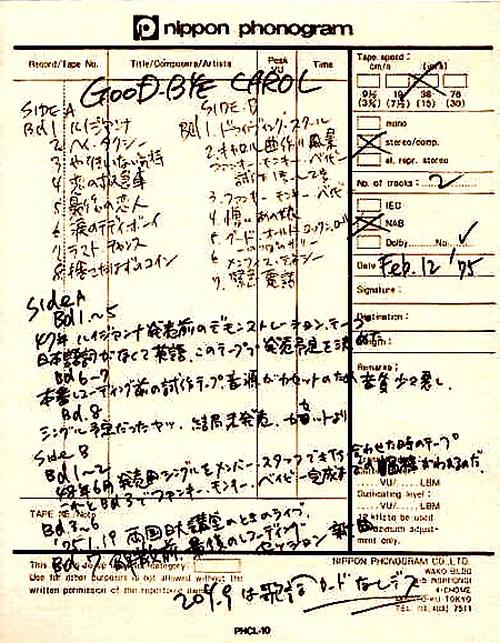 nippon phonogram
Record/Tape No. Title/Composers/Artists Peak VU Time
GOOD-BYE CAROL
SIDE A
Bd1. ルイジアンナ
2. ヘイ・タクシー
3. やりきれない気持
4. 恋の救急車
5. 最後の恋人
6. 涙のテディボーイ
7. ラスト チャンス
8. 捨てたはずのコイン
SIDE B
Bd1. ドライヴィング・スクール
2. キャロル 曲作り風景
ファンキー・モンキー・ベイビー
3. ファンキー モンキー ベイビー
4. 憎いあの娘
5. グッド オールド ロックンロール
6. メンフィス・テネシー
7. 緊急電話
Side A
Bd 1~5
47年 ルイジアンナ発売前のデモンストレーション・テープ
日本語詞がなくて英語、このテープで発売予定を決めた
Bd 6-7
本番レコーディング前の試作テープ 音源がカセットのため音質少々悪し.
Bd. 8
シングル予定だったヤツ、結局未発売、カセットより
Side B
Bd 1~2
48年6月発売用シングルをメンバー・スタッフで打ち合わせた時のテープ
Bd 3でファンキー・モンキー・ベイビー完成
Bd. 3~6
'75 1.19 両国日大講堂のときのライブ.
Bd. 7 解散前、最後のレコーディング
Tape speed:
cm/s (in/s)
9½ 19 38 76
(3¾) (7½) (15) (30)
mono
stereo/comp.
al. repr. stereo
No. of tracks: 2
IEC
NAB
Dolby No.
Date Feb. 12 '75
Signature:
Destination:
Length:
Remarks:
VU/ LBM
Duplicating level:
VU/ LBM
ment only.
TAPE NE/Note
written permission of the
NIPPON PHONOGRAM CO., LTD.
WAKO BLDG
4-CHOME
TOKYO
PHCL-10